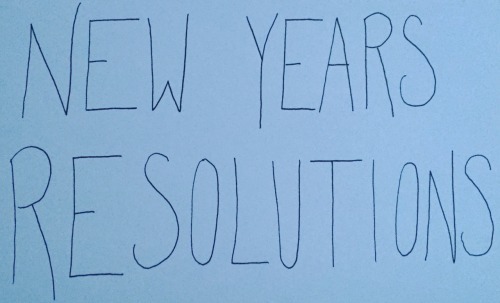 NEW YEARS
RESOLUTIONS